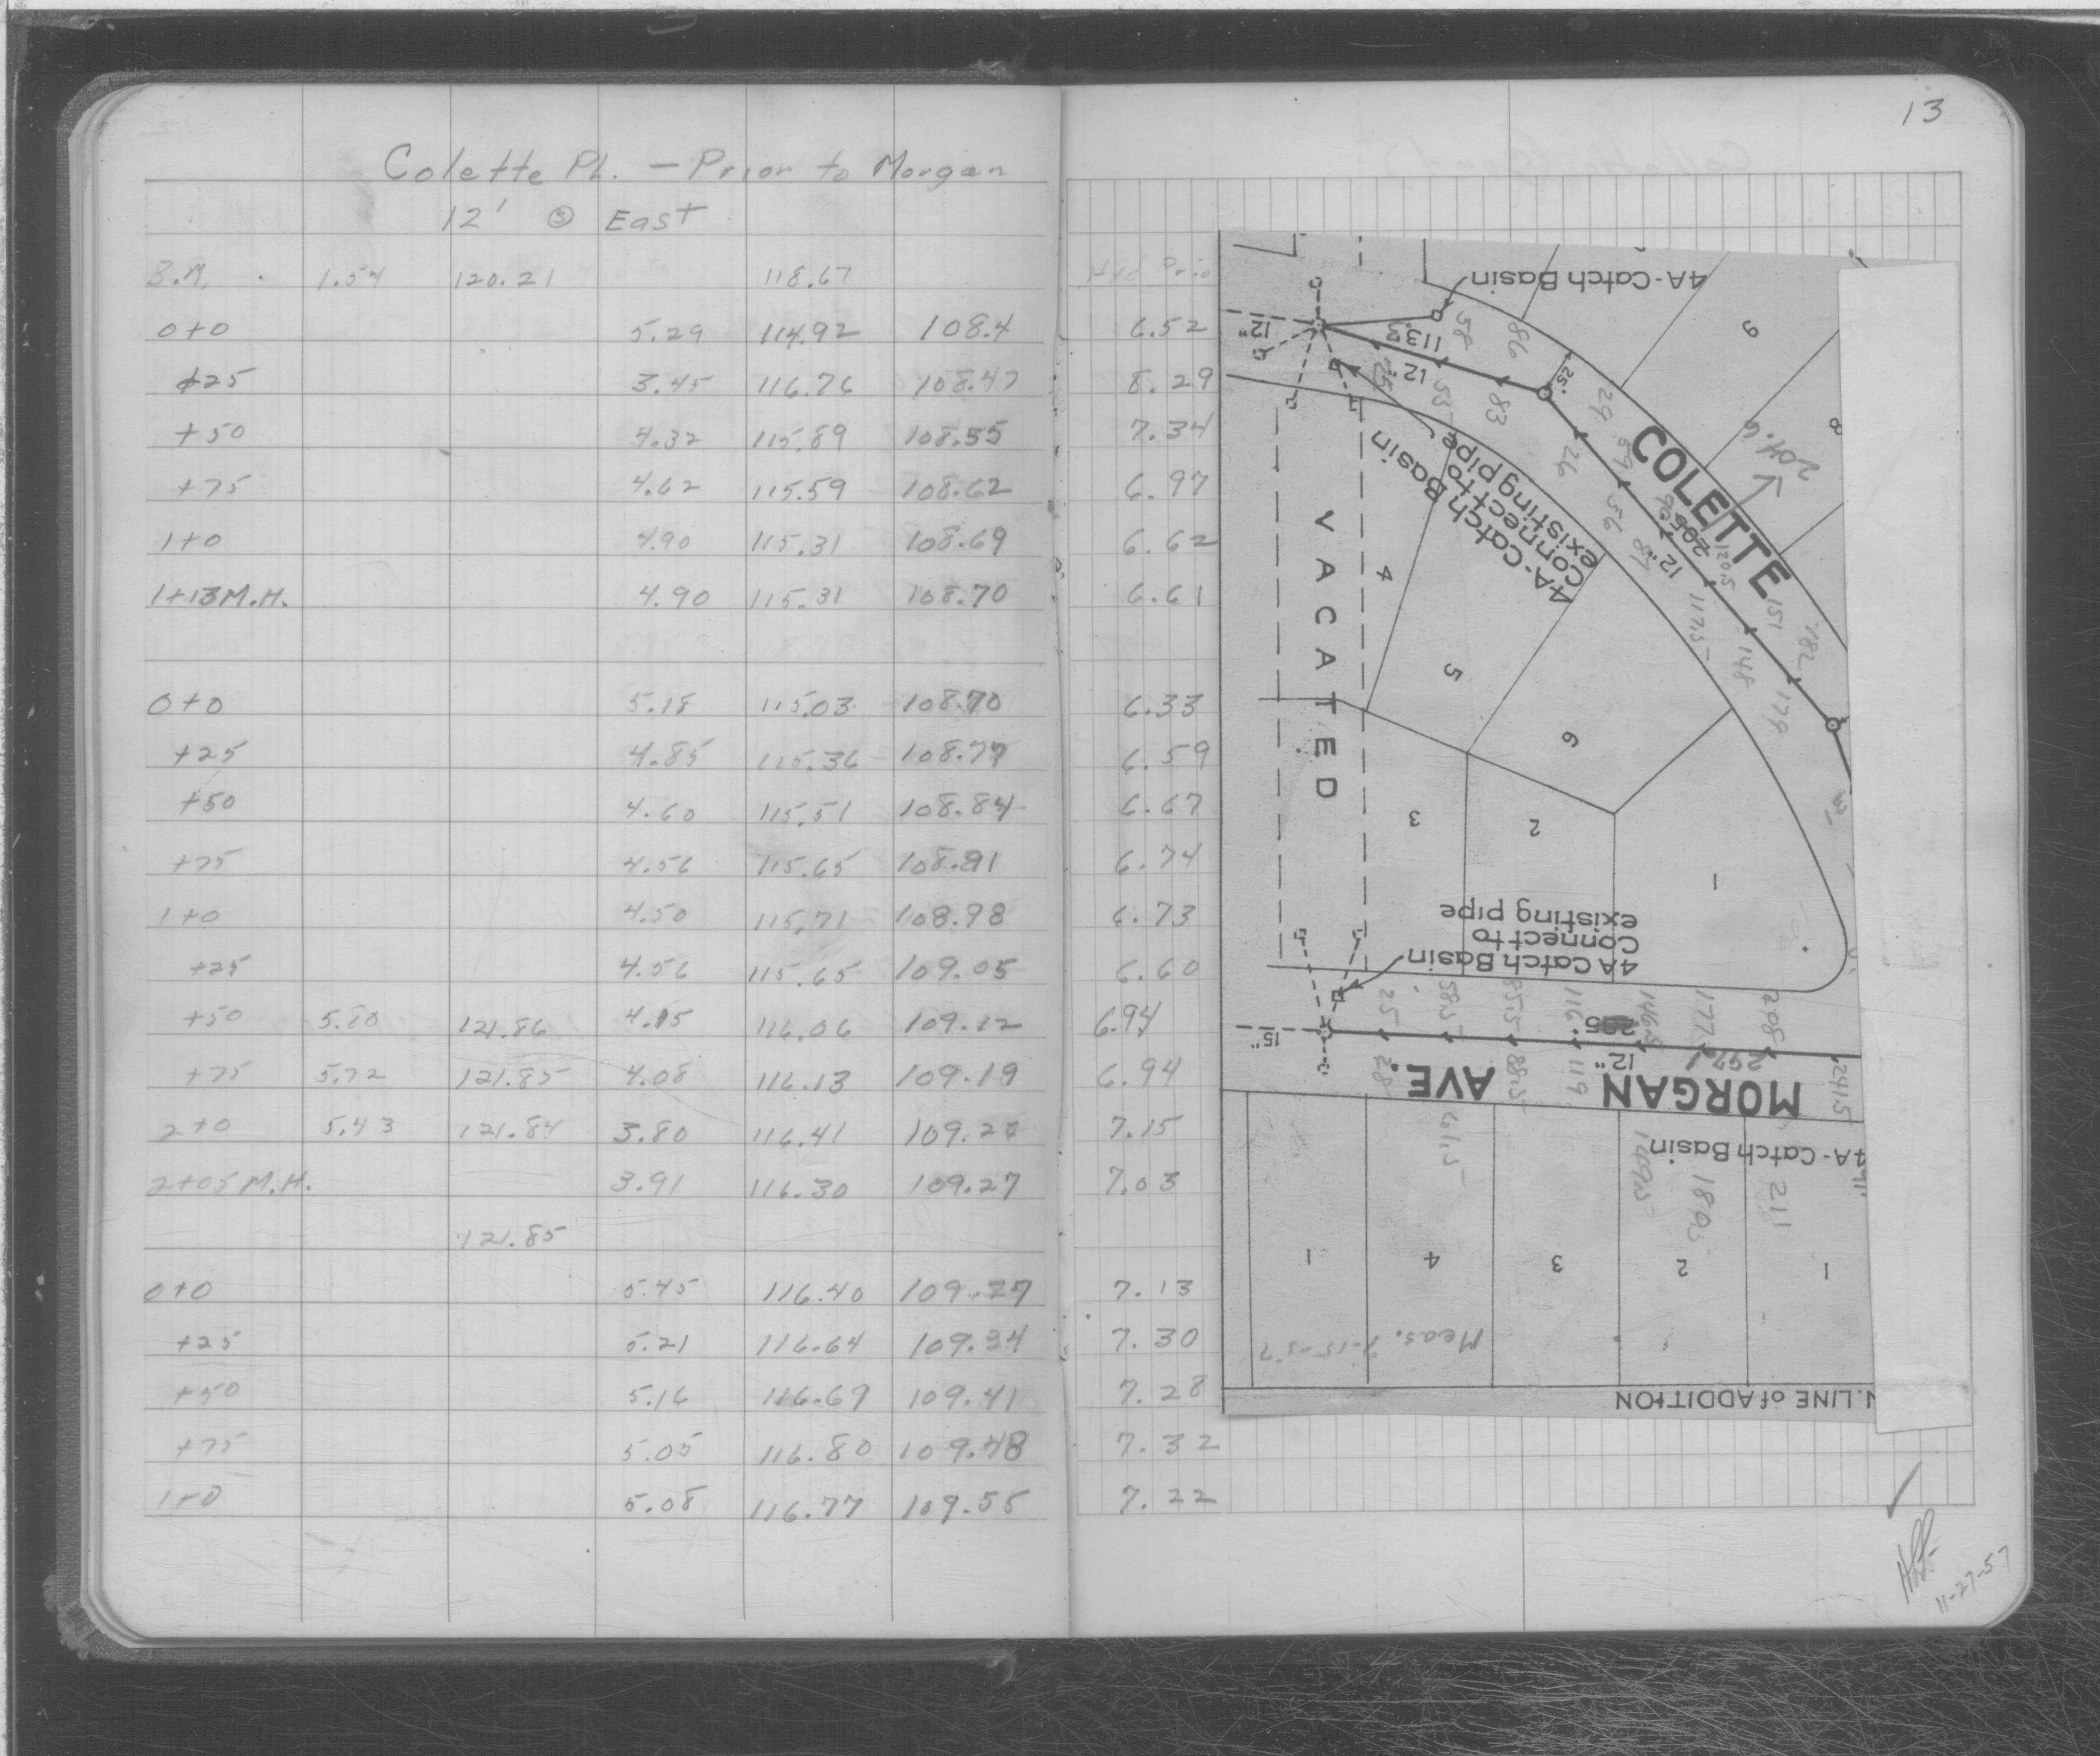 13
Colette Pl. — Prior to Morgan
12' Ⓢ East
B.M. 1.54 120.21 118.67
0+0 5.29 114.92 108.4 6.52
+25 3.45 116.76 108.47 8.29
+50 4.32 115.89 108.55 7.34
+75 4.62 115.59 108.62 6.97
1+0 4.90 115.31 108.69 6.62
1+13 M.H. 4.90 115.31 108.70 6.61
0+0 5.18 115.03 108.70 6.33
+25 4.85 115.36 108.77 6.59
+50 4.60 115.51 108.84 6.67
+75 4.56 115.65 108.91 6.74
1+0 4.50 115.71 108.98 6.73
+25 4.56 115.65 109.05 6.60
+50 5.80 121.86 4.15 116.06 109.12 6.94
+75 5.72 121.85 4.08 116.13 109.19 6.94
2+0 5.43 121.84 3.80 116.41 109.26 7.15
2+05 M.H. 3.91 116.30 109.27 7.03
121.85
0+0 5.45 116.40 109.27 7.13
+25 5.21 116.64 109.34 7.30
+50 5.16 116.69 109.41 7.28
+75 5.05 116.80 109.48 7.32
1+0 5.08 116.77 109.55 7.22
4A-Catch Basin
12"
113.3
12"
58
86
25
55
83
25'
9
8
29
59
26
56
87
90
COLETTE
204.6
205
12"
120.5
117.5
151
148
182
179
4A-Catch Basin
Connect to
existing pipe
VACATED
4
5
6
3
2
1
4A Catch Basin
Connect to
existing pipe
15"
25
58.5
85.5
116
146.5
177.5
208
205
12"
297.1
28
88.5
119
241.5
MORGAN AVE.
61.5
149.5
180.5
211
4A-Catch Basin
1
4
3
2
1
Meas. 7-15-57
N. LINE of ADDITION
11-27-57